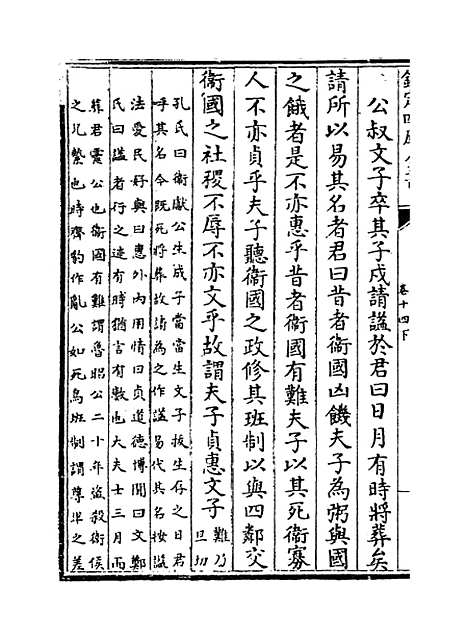 欽定四庫全書
卷十四下
公叔文子卒其子戍請諡於君曰日月有時將葬矣
請所以易其名者君曰昔者衛國凶饑夫子為粥與國
之餓者是不亦惠乎昔者衛國有難夫子以其死衛寡
人不亦貞乎夫子聽衛國之政修其班制以與四鄰交
衛國之社稷不辱不亦文乎故謂夫子貞惠文子難乃旦切
孔氏曰衛獻公生成子當當生文子拔生存之日君
呼其名今既死將葬故請為之作諡易代其名按諡
法愛民好與曰惠外內用情曰貞道德博聞曰文鄭
氏曰諡者行之迹有時猶言有數也大夫士三月而
葬君靈公也衛國有難謂魯昭公二十年盜殺衛侯
之兄縶也時齊豹作亂公如死鳥班制謂尊卑之差